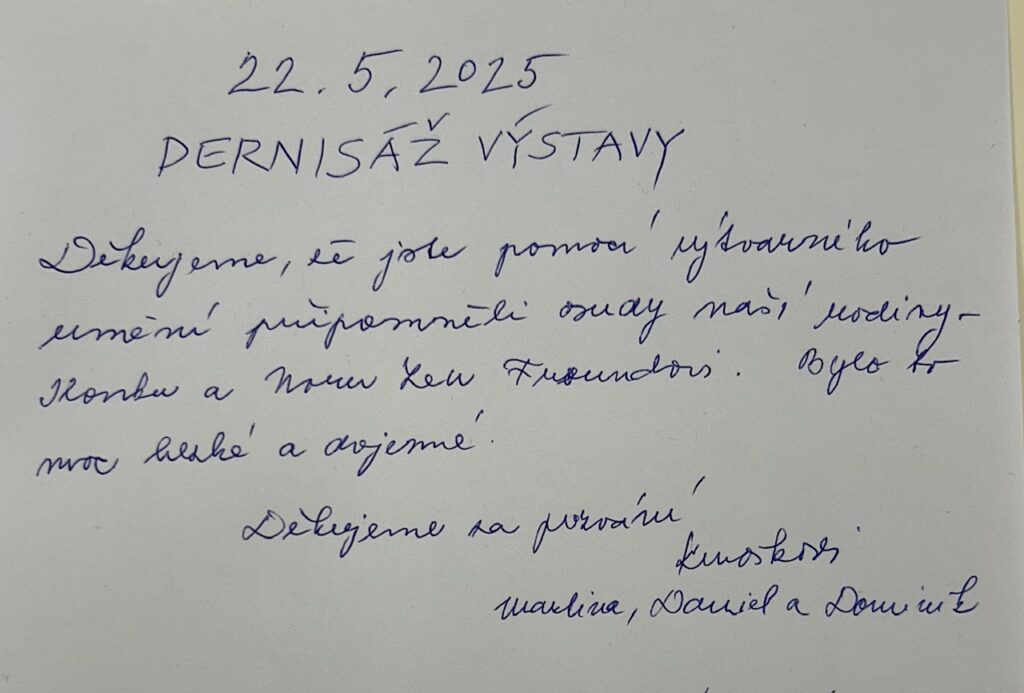 22. 5. 2025
DERNISÁŽ VÝSTAVY
Děkujeme, že jste pomocí výtvarného
umění připomněli osudy naší rodiny -
a Freundovi. Bylo to
moc hezké a dojemné.
Děkujeme za pozvání
Martina, Daniel a Dominik